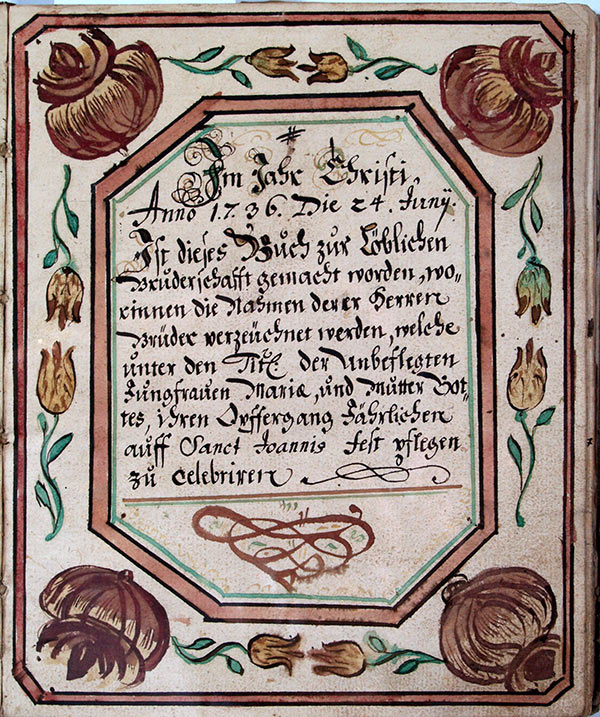 Im Jahr Christi,
Anno 1736. Die 24. Junÿ.
Ist dieses Buch zur Löblichen
Bruderschafft gemacht worden, wo-
rinnen die Nahmen derer Herren
Brüder verzeüchnet werden, welche
unter den Titl. der Unbeflegten
Jungfrauen Mariæ, und Mütter Got-
tes, ihren Opffergang Jährlichen
auff Sanct Joannis fest pflegen
zu Celebriren